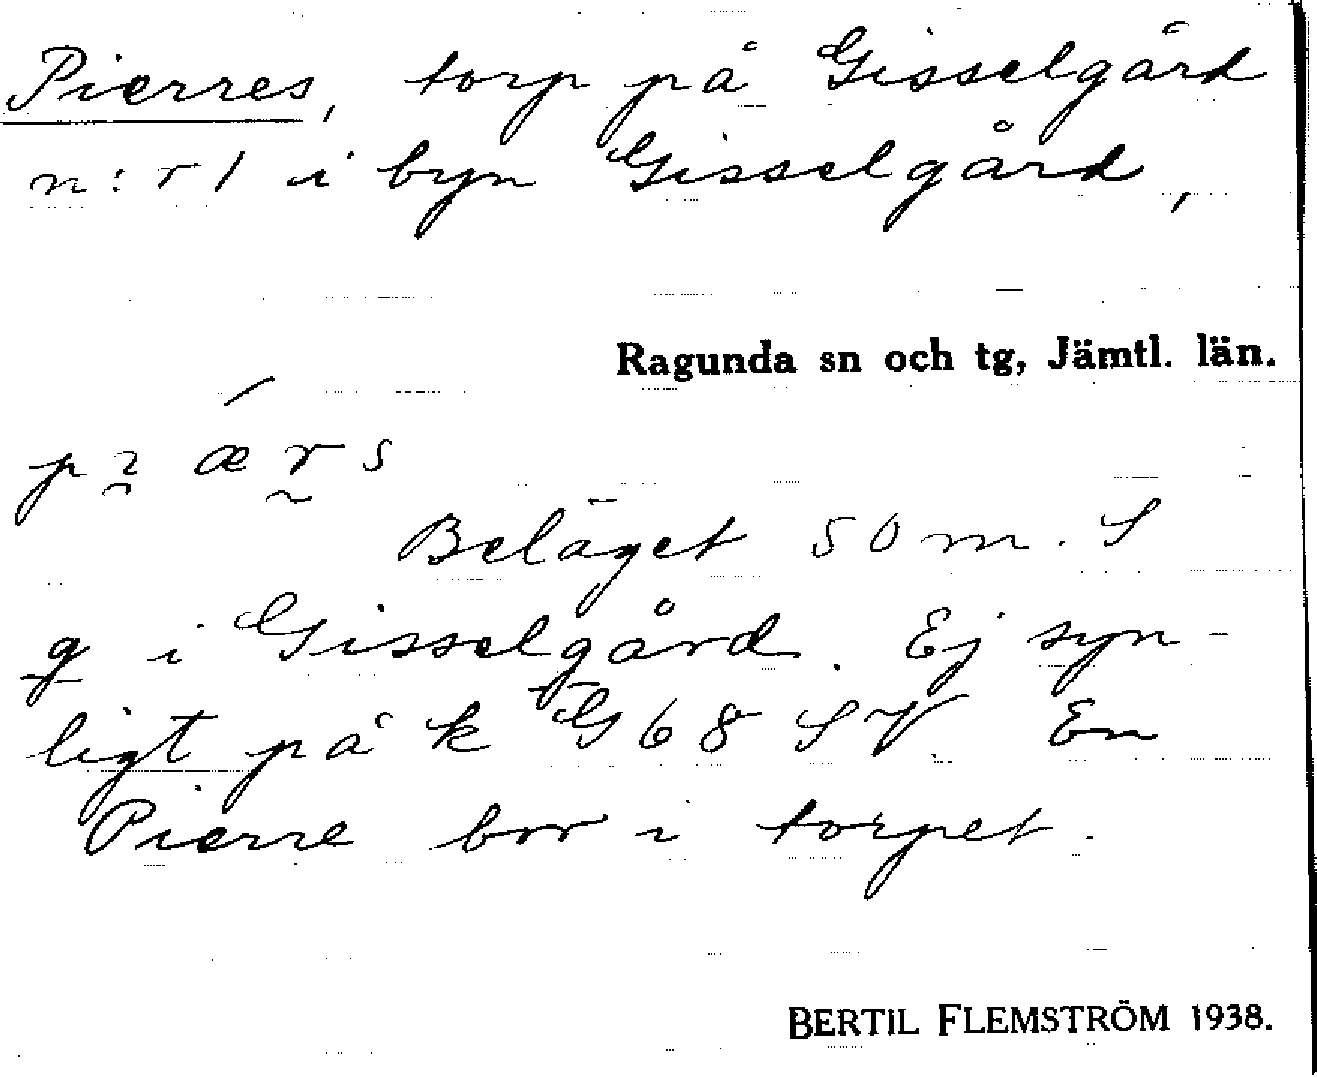 Pierres, torp på Gisselgård
n:r 1 i byn Gisselgård,
Ragunda sn och tg, Jämtl. län.
Beläget 50 m. S
g i Gisselgård. Ej syn-
ligt på k G 68 SV. En
Pierre bor i torpet.
BERTIL FLEMSTRÖM 1938.